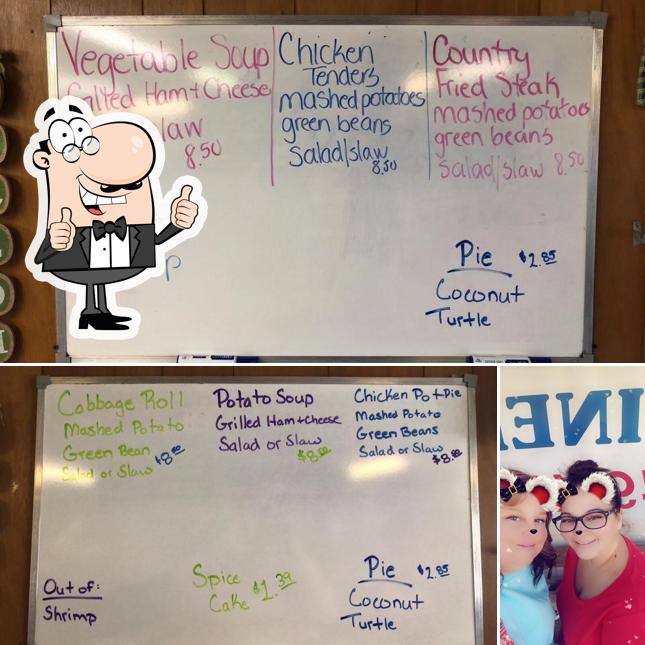 Vegetable Soup
Ham + Cheese
law
8.50
Chicken
Tenders
mashed potatoes
green beans
Salad/slaw
8.50
Country
Fried Steak
mashed potatoes
green beans
Salad/slaw 8.50
Pie $2.85
Coconut
Turtle
Cabbage Roll
Mashed Potato
Green Bean $8.00
Salad or Slaw
Potato Soup
Grilled Ham + Cheese
Salad or Slaw
$8.00
Chicken Pot-Pie
Mashed Potato
Green Beans
Salad or Slaw
$8.00
Out of:
Shrimp
Spice
Cake $1.39
Pie $2.85
Coconut
Turtle
INE